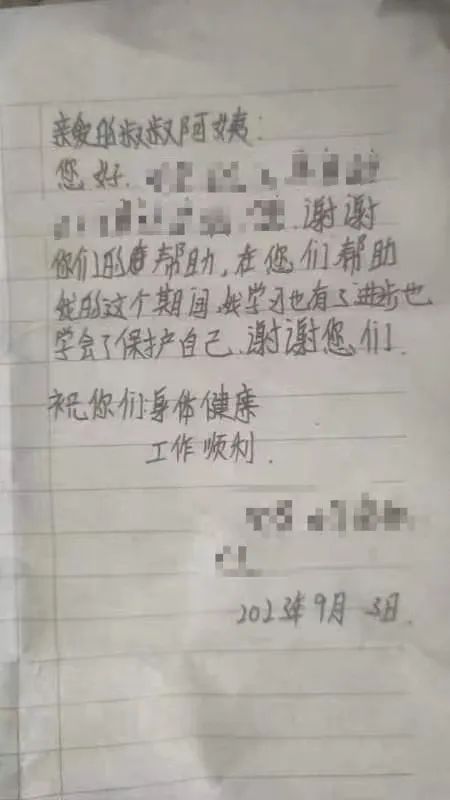 亲爱的叔叔阿姨:
您好.
谢谢
你们的帮助,在您们帮助
我的这个期间,我学习也有了进步也
学会了保护自己.谢谢您们.
祝你们身体健康
工作顺利.
2023年9月3日.